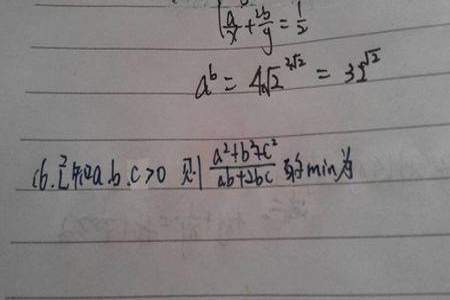 a/x + 2b/y = 1/2
a^b = 4√2^{2√2} = 32^{√2}
16. 已知a.b.c>0 则 (a²+b²+c²)/(ab+2bc) 的min为